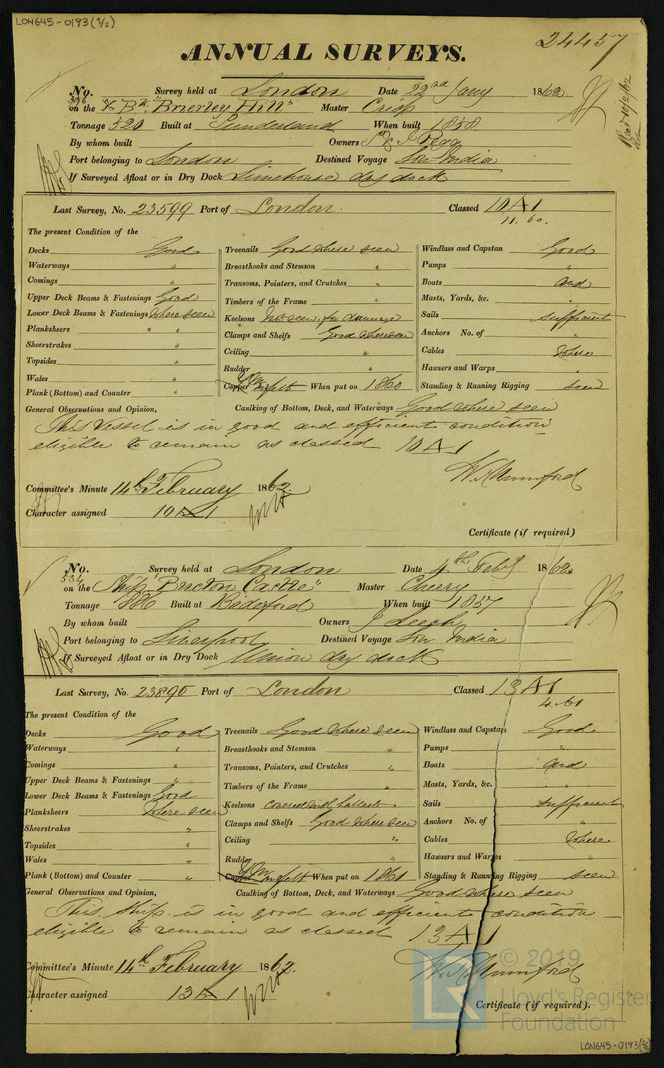 LON645-0193(1/2)
24457
ANNUAL SURVEYS.
No. Survey held at London Date 22nd Jany 1862
on the Bk "Brierley Hill" Master Crisp
Tonnage 320 Built at Sunderland When built 1858
By whom built Owners
Port belonging to London Destined Voyage India
If Surveyed Afloat or in Dry Dock Limehouse dry dock
Last Survey, No. 23599 Port of London Classed 10 A 1
11. 60.
The present Condition of the
Decks Good Treenails Good where seen Windlass and Capstan Good
Waterways " Breasthooks and Stemson " Pumps "
Comings " Transoms, Pointers, and Crutches " Boats and
Upper Deck Beams & Fastenings Good Timbers of the Frame " Masts, Yards, &c. "
Lower Deck Beams & Fastenings where seen Keelsons Not seen Sails sufficient
Planksheers " " Clamps and Shelfs Good where seen Anchors No. of "
Sheerstrakes " Ceiling " Cables where
Topsides " Rudder " Hawsers and Warps "
Wales " Copper When put on 1860 Standing & Running Rigging seen
Plank (Bottom) and Counter "
General Observations and Opinion, Caulking of Bottom, Deck, and Waterways Good where seen
This Vessel is in good and efficient condition
eligible to remain as classed 10 A 1
Committee's Minute 14th February 1862.
Character assigned 10 A 1
Certificate (if required)
No. Survey held at London Date 4th Feby 1862
534
on the Ship "Bucton Castle" Master Cherry
Tonnage Built at Bideford When built 1857
By whom built Owners J Leech
Port belonging to Liverpool Destined Voyage India
If Surveyed Afloat or in Dry Dock Union dry dock
Last Survey, No. 23890 Port of London Classed 13 A 1
4. 61
The present Condition of the
Decks Good Treenails Good where seen Windlass and Capstan Good
Waterways " Breasthooks and Stemson " Pumps "
Comings " Transoms, Pointers, and Crutches " Boats and
Upper Deck Beams & Fastenings " Timbers of the Frame " Masts, Yards, &c. "
Lower Deck Beams & Fastenings Good Keelsons covered with ballast. Sails sufficient
Planksheers where seen Clamps and Shelfs Good where seen Anchors No. of "
Sheerstrakes " Ceiling " Cables where
Topsides " Rudder Hawsers and Warps "
Wales " Copper When put on 1861 Standing & Running Rigging seen
Plank (Bottom) and Counter "
General Observations and Opinion, Caulking of Bottom, Deck, and Waterways Good where seen
This Ship is in good and efficient condition
eligible to remain as classed 13 A 1
Committee's Minute 14th February 1862.
Character assigned 13 A 1
Certificate (if required).
© 2019
LR
Lloyd's Register
Foundation
LON645-0193(2/2)